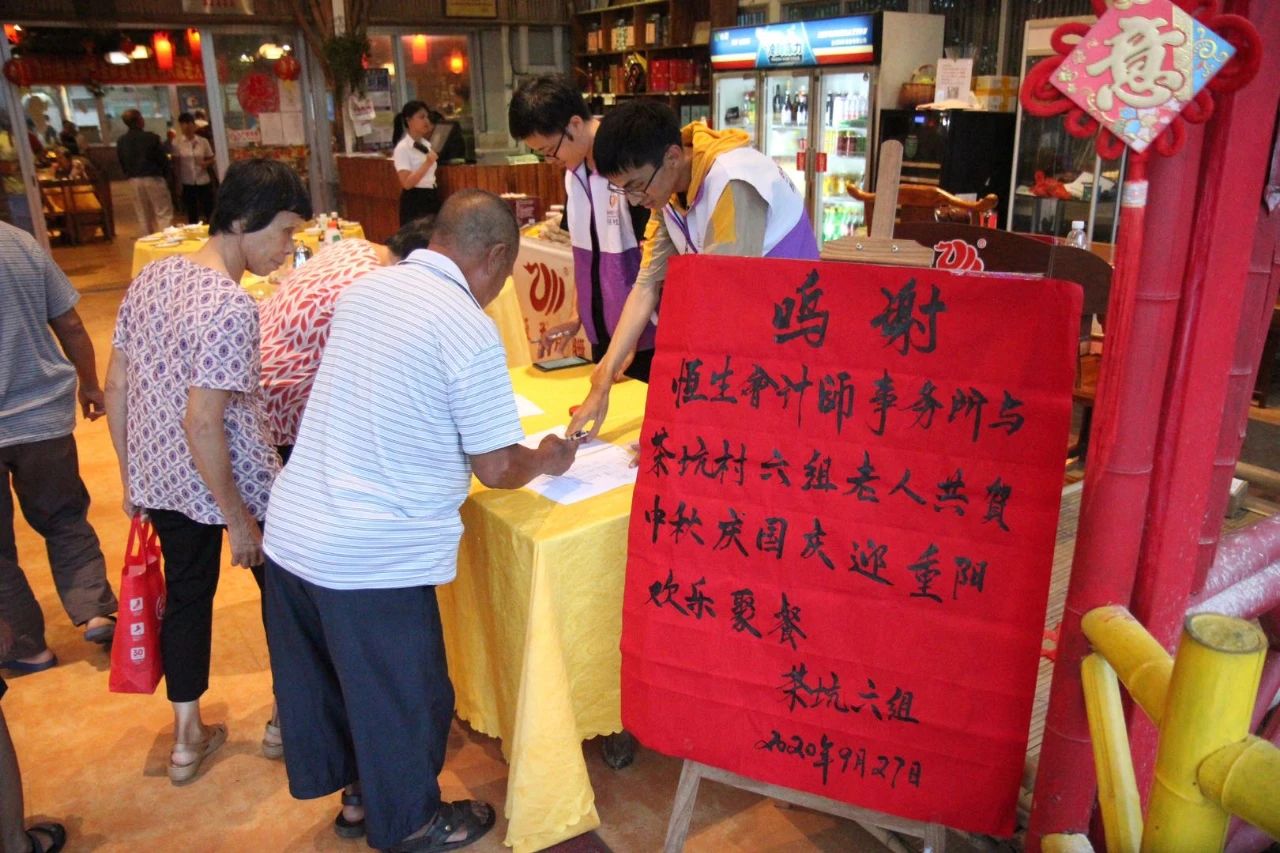 鸣谢
恒生会计师事务所与
茶坑村六组老人共賀
中秋庆国庆迎重阳
欢乐聚餐
茶坑六组
2020年9月27日
意